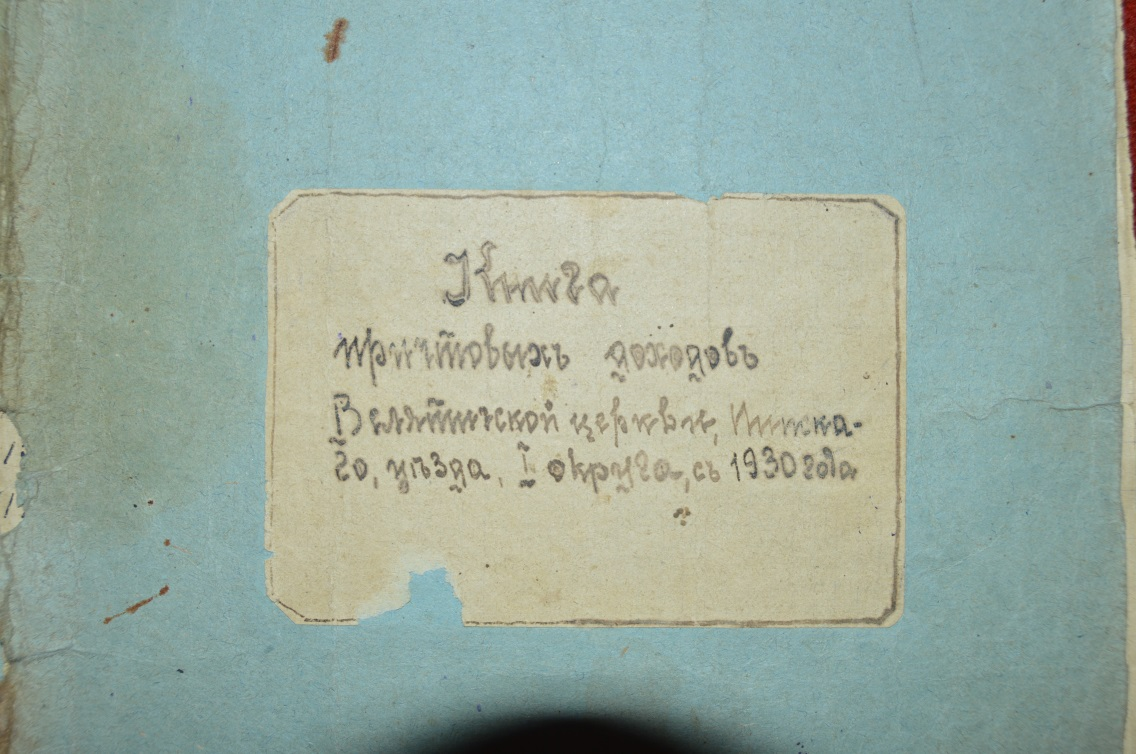 Книга
причтовыхъ доходовъ
Велятичской церкви, Пинска-
го, уѣзда, I округа, съ 1930 года